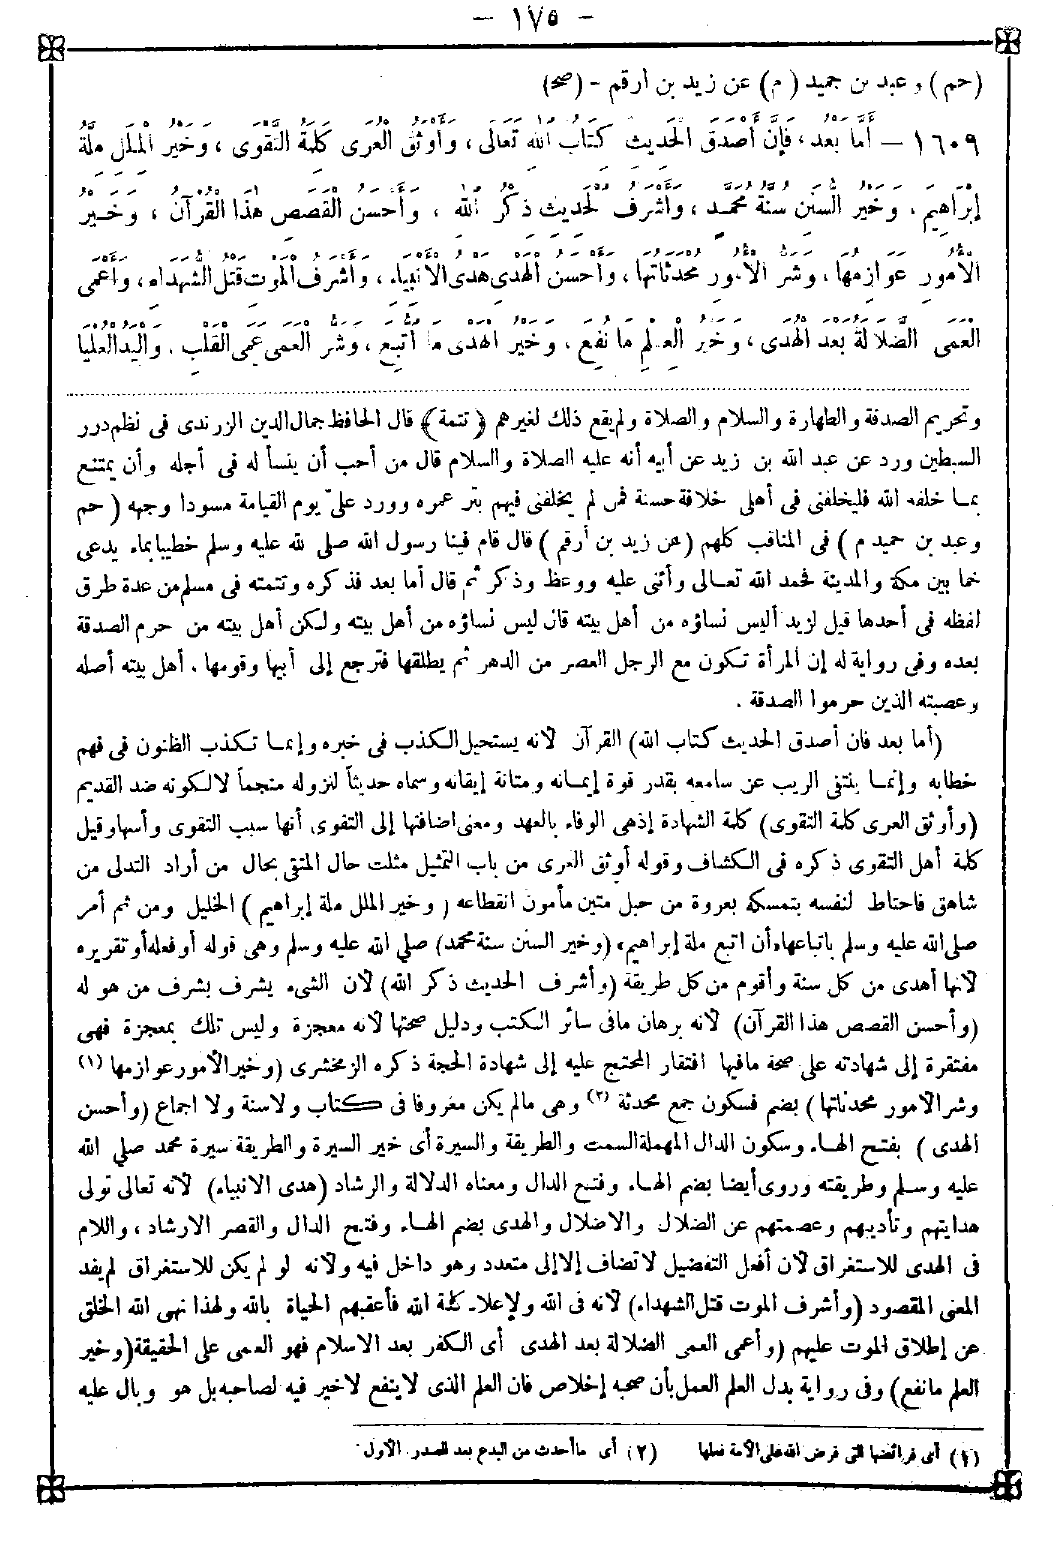 — ١٧٥ —
(حم) وعبد بن حميد (م) عن زيد بن أرقم - (صح)
١٦٠٩ — أَمَّا بَعْدُ، فَإِنَّ أَصْدَقَ الْحَدِيثِ كِتَابُ اللهِ تَعَالَى، وَأَوْثَقَ الْعُرَى كَلِمَةُ التَّقْوَى، وَخَيْرَ الْمِلَلِ مِلَّةُ
إِبْرَاهِيمَ، وَخَيْرَ السُّنَنِ سُنَّةُ مُحَمَّدٍ، وَأَشْرَفَ الْحَدِيثِ ذِكْرُ اللهِ، وَأَحْسَنَ الْقَصَصِ هَذَا الْقُرْآنُ، وَخَيْرَ
الْأُمُورِ عَوَازِمُهَا، وَشَرَّ الْأُمُورِ مُحْدَثَاتُهَا، وَأَحْسَنَ الْهَدْيِ هَدْيُ الْأَنْبِيَاءِ، وَأَشْرَفَ الْمَوْتِ قَتْلُ الشُّهَدَاءِ، وَأَعْمَى
الْعَمَى الضَّلَالَةُ بَعْدَ الْهُدَى، وَخَيْرَ الْعِلْمِ مَا نَفَعَ، وَخَيْرَ الْهُدَى مَا اتُّبِعَ، وَشَرَّ الْعَمَى عَمَى الْقَلْبِ، وَالْيَدُ الْعُلْيَا
وتحريم الصدقة والطهارة والسلام والصلاة ولم يقع ذلك لغيرهم (تتمة) قال الحافظ جمال الدين الزرندى فى نظم درر
السبطين ورد عن عبد الله بن زيد عن أبيه أنه عليه الصلاة والسلام قال من أحب أن ينسأ له فى أجله وأن يمتع
بما خلفه الله فليخلفنى فى أهلى خلافة حسنة فمن لم يخلفنى فيهم بتر عمره وورد علىّ يوم القيامة مسودا وجهه (حم
وعبد بن حميد م) فى المناقب كلهم (عن زيد بن أرقم) قال قام فينا رسول الله صلى لله عليه وسلم خطيبا بماء يدعى
خما بين مكة والمدينة فحمد الله تعالى وأثنى عليه ووعظ وذكر ثم قال أما بعد فذكره وتتمته فى مسلم من عدة طرق
لفظه فى أحدها قيل لزيد أليس نساؤه من أهل بيته قال ليس نساؤه من أهل بيته ولكن أهل بيته من حرم الصدقة
بعده وفى رواية له إن المرأة تكون مع الرجل العصر من الدهر ثم يطلقها فترجع إلى أبيها وقومها. أهل بيته أصله
وعصبته الذين حرموا الصدقة.
(أما بعد فان أصدق الحديث كتاب الله) القرآن لأنه يستحيل الكذب فى خبره وإنما تكذب الظنون فى فهم
خطابه وإنما ينتفى الريب عن سامعه بقدر قوة إيمانه ومتانة إيقانه وسماه حديثاً لنزوله منجماً لا لكونه ضد القديم
(وأوثق العرى كلمة التقوى) كلمة الشهادة إذهى الوفاء بالعهد ومعنى اضافتها إلى التقوى أنها سبب التقوى وأسها وقيل
كلمة أهل التقوى ذكره فى الكشاف وقوله أوثق العرى من باب التمثيل مثلت حال المتقى بحال من أراد التدلى من
شاهق فاحتاط لنفسه بتمسكه بعروة من حبل متين مأمون انقطاعه (وخير الملل ملة إبراهيم) الخليل ومن ثم أمر
صلى الله عليه وسلم باتباعها، أن اتبع ملة إبراهيم، (وخير السنن سنة محمد) صلى الله عليه وسلم وهى قوله أو فعله أو تقريره
لأنها أهدى من كل سنة وأقوم من كل طريقة (وأشرف الحديث ذكر الله) لأن الشىء يشرف بشرف من هو له
(وأحسن القصص هذا القرآن) لأنه برهان مافى سائر الكتب ودليل صحتها لأنه معجزة وليس تلك بمعجزة فهى
مفتقرة إلى شهادته على صحة مافيها افتقار المحتج عليه إلى شهادة الحجة ذكره الزمخشرى (وخير الأمور عوازمها (١)
وشر الأمور محدثاتها) بضم فسكون جمع محدثة (٢) وهى مالم يكن معروفا فى كتاب ولا سنة ولا اجماع (وأحسن
الهدى) بفتح الهاء وسكون الدال المهملة السمت والطريقة والسيرة أى خير السيرة والطريقة سيرة محمد صلى الله
عليه وسلم وطريقته وروى أيضا بضم الهاء وفتح الدال ومعناه الدلالة والرشاد (هدى الانبياء) لأنه تعالى تولى
هدايتهم وتأديبهم وعصمتهم عن الضلال والاضلال والهدى بضم الهاء وفتح الدال والقصر الارشاد، واللام
فى الهدى للاستغراق لأن أفعل التفضيل لا تضاف إلا إلى متعدد وهو داخل فيه ولأنه لو لم يكن للاستغراق لم يفد
المعنى المقصود (وأشرف الموت قتل الشهداء) لأنه فى الله ولإعلاء كلمة الله فأعقبهم الحياة بالله ولهذا نهى الله الخلق
عن إطلاق الموت عليهم (وأعمى العمى الضلالة بعد الهدى أى الكفر بعد الاسلام فهو العمى على الحقيقة (وخير
العلم مانفع) وفى رواية بدل العلم العمل بأن صحبه إخلاص فان العلم الذى لا ينفع لا خير فيه لصاحبه بل هو وبال عليه
(١) أى فرائضها التى فرض الله على الأمة فعلها (٢) أى ماأحدث من البدع بعد الصدر الأول